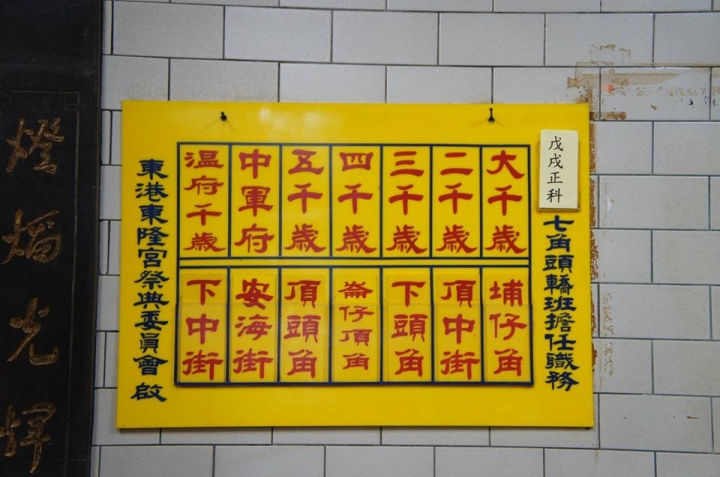 戊戌正科
七角頭轎班擔任職務
大千歲
埔仔角
二千歲
頂中街
三千歲
下頭角
四千歲
崙仔頂角
五千歲
頂頭角
中軍府
安海街
温府千歲
下中街
東港東隆宮祭典委員會 啟
燈焰光輝